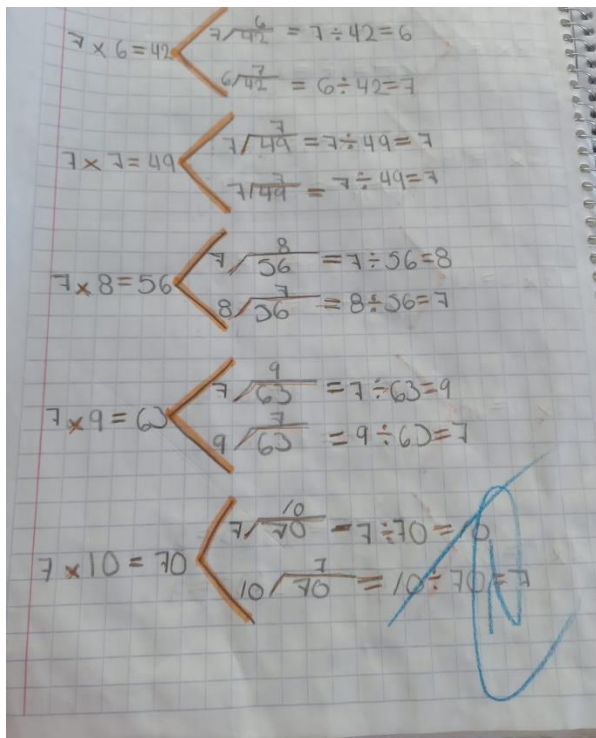 6
7 × 6 = 42 7/42 = 7 ÷ 42 = 6
7
6/42 = 6 ÷ 42 = 7
7
7 × 7 = 49 7/49 = 7 ÷ 49 = 7
7
7/49 = 7 ÷ 49 = 7
8
7 × 8 = 56 7/56 = 7 ÷ 56 = 8
7
8/56 = 8 ÷ 56 = 7
9
7 × 9 = 63 7/63 = 7 ÷ 63 = 9
7
9/63 = 9 ÷ 63 = 7
10
7 × 10 = 70 7/70 = 7 ÷ 70 = 10
7
10/70 = 10 ÷ 70 = 7